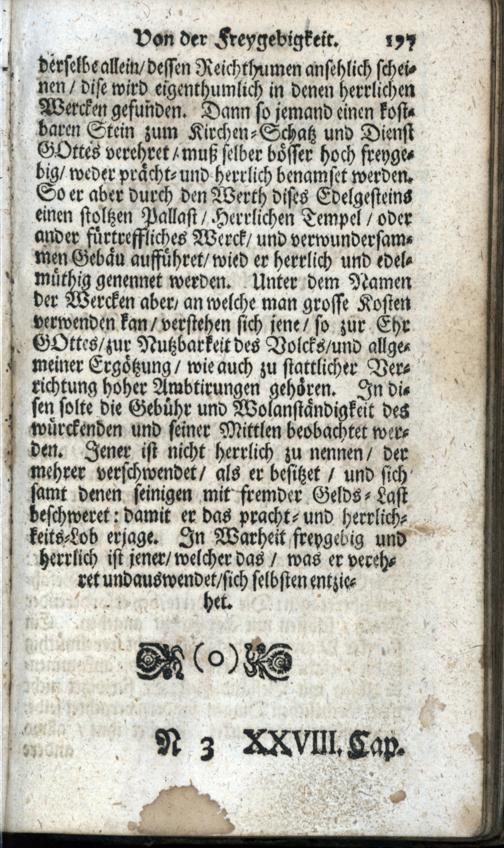 Von der Freygebigkeit. 197
derselbe allein/ dessen Reichthumen ansehlich schei-
nen/ dise wird eigenthumlich in denen herrlichen
Wercken gefunden. Dann so jemand einen kost-
baren Stein zum Kirchen-Schatz und Dienst
GOttes verehret/ muß selber bösser hoch freyge-
big/ weder prächt- und herrlich benamset werden.
So er aber durch den Werth dises Edelgesteins
einen stoltzen Pallast/ Herrlichen Tempel/ oder
ander fürtreffliches Werck/ und verwundersam-
men Gebäu aufführet/ wied er herrlich und edel-
müthig genennet werden. Unter dem Namen
der Wercken aber/ an welche man grosse Kosten
verwenden kan/ verstehen sich jene/ so zur Ehr
GOttes/ zur Nutzbarkeit des Volcks/ und allge-
meiner Ergötzung/ wie auch zu stattlicher Ver-
richtung hoher Ambtirungen gehören. In di-
sen solte die Gebühr und Wolanständigkeit des
würckenden und seiner Mittlen beobachtet wer-
den. Jener ist nicht herrlich zu nennen/ der
mehrer verschwendet/ als er besitzet/ und sich
samt denen seinigen mit fremder Gelds-Last
beschweret: damit er das pracht- und herrlich-
keits-Lob erjage. In Warheit freygebig und
herrlich ist jener/ welcher das/ was er vereh-
ret undauswendet/ sich selbsten entzie-
het.
(o)
N 3 XXVIII. Cap.